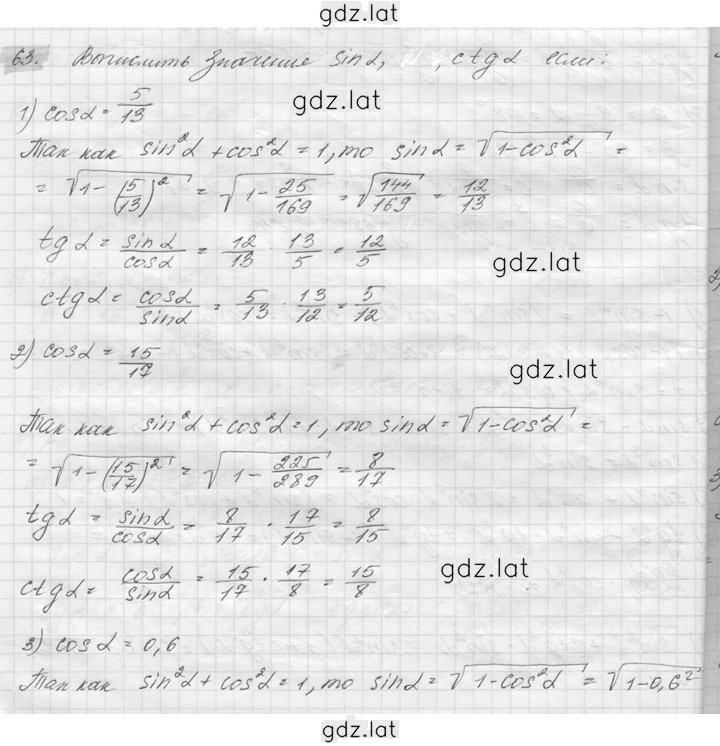 gdz.lat
63. Вычислить значение sinα, , ctgα если:
gdz.lat
1) cosα = 5/13
Так как sin²α + cos²α = 1, то sinα = √(1-cos²α) =
= √(1-(5/13)²) = √(1-25/169) = √(144/169) = 12/13
tgα = sinα/cosα = 12/13 · 13/5 = 12/5
gdz.lat
ctgα = cosα/sinα = 5/13 · 13/12 = 5/12
2) cosα = 15/17
gdz.lat
Так как sin²α + cos²α = 1, то sinα = √(1-cos²α) =
= √(1-(15/17)²) = √(1-225/289) = 8/17
tgα = sinα/cosα = 8/17 · 17/15 = 8/15
gdz.lat
ctgα = cosα/sinα = 15/17 · 17/8 = 15/8
3) cosα = 0,6
Так как sin²α + cos²α = 1, то sinα = √(1-cos²α) = √(1-0,6²)
gdz.lat